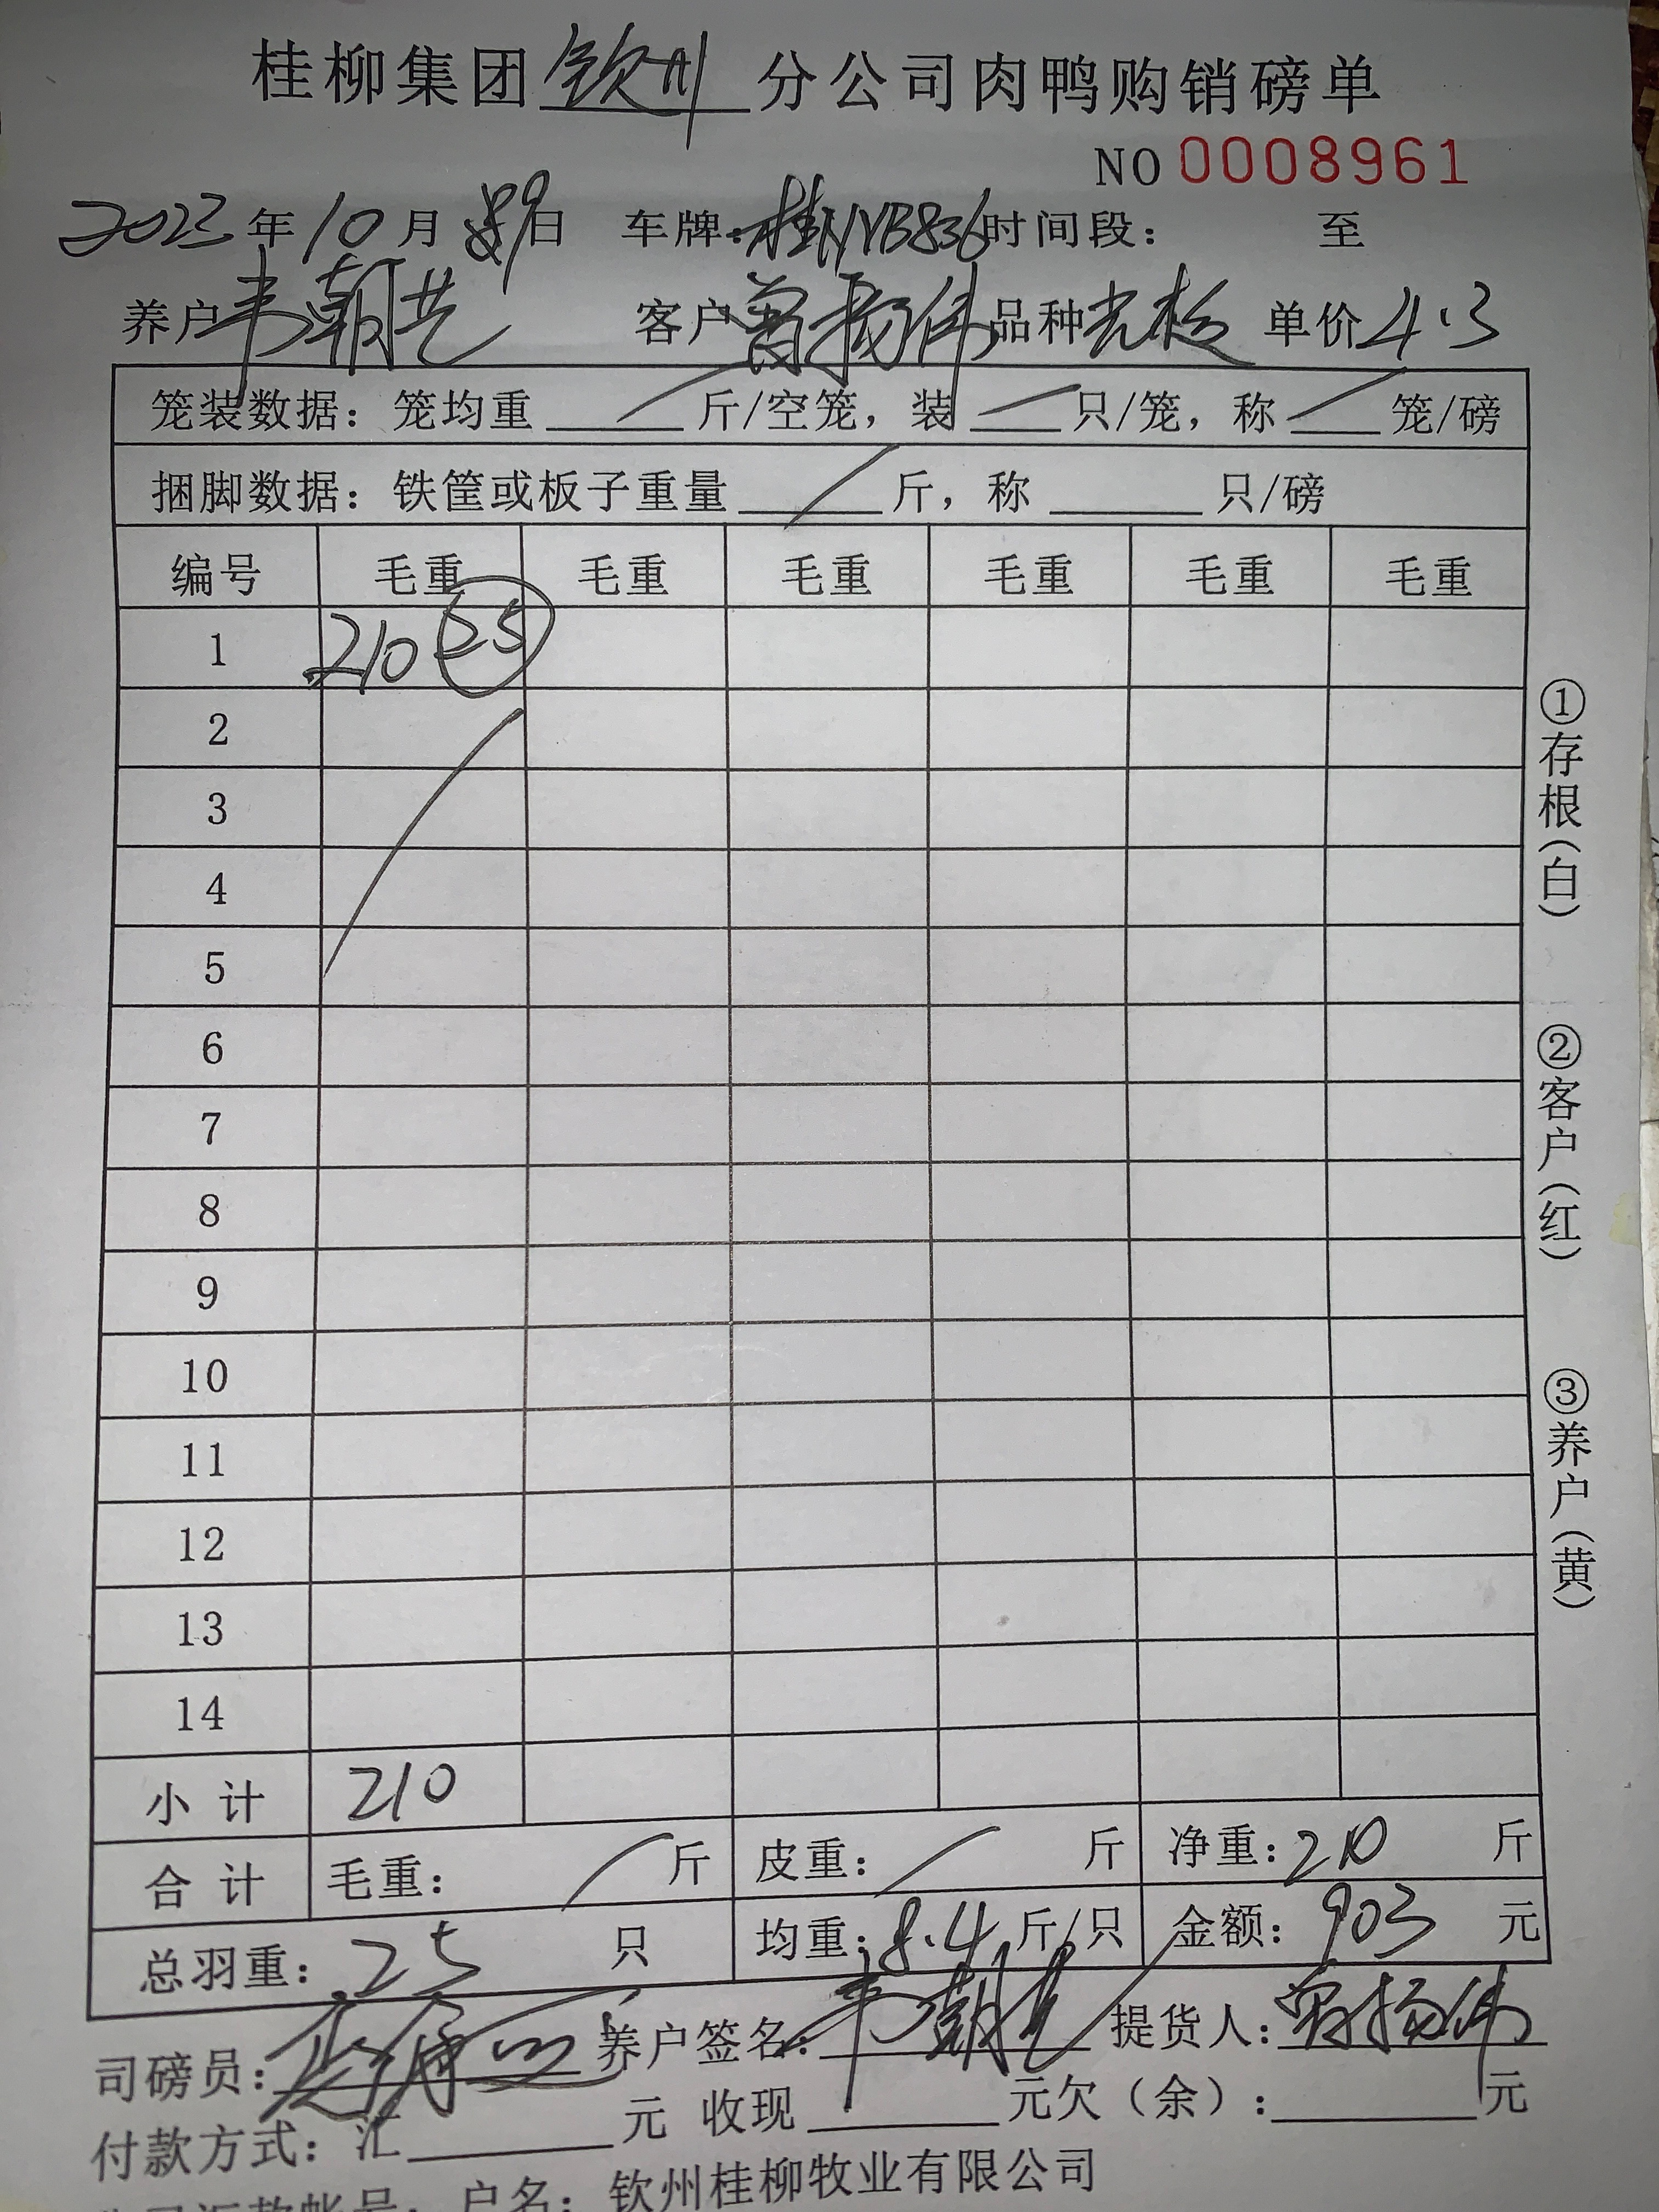 桂柳集团钦州分公司肉鸭购销磅单
NO 0008961
2023年10月9日 车牌:桂NYB836时间段: 至
养户韦朝艺 客户曾扬伟品种 单价4.3
笼装数据: 笼均重 斤/空笼, 装 只/笼, 称 笼/磅
捆脚数据: 铁筐或板子重量 斤, 称 只/磅
编号 毛重 毛重 毛重 毛重 毛重 毛重
1 210 25
2
3
4
5
6
7
8
9
10
11
12
13
14
小 计 210
合 计 毛重: 斤 皮重: 斤 净重:210 斤
总羽重: 25 只 均重:8.4斤/只 金额: 903 元
司磅员: 养户签名: 韦朝艺 提货人:曾扬伟
付款方式: 汇 元 收现 元欠(余): 元
户名: 钦州桂柳牧业有限公司
①存根(白)
②客户(红)
③养户(黄)